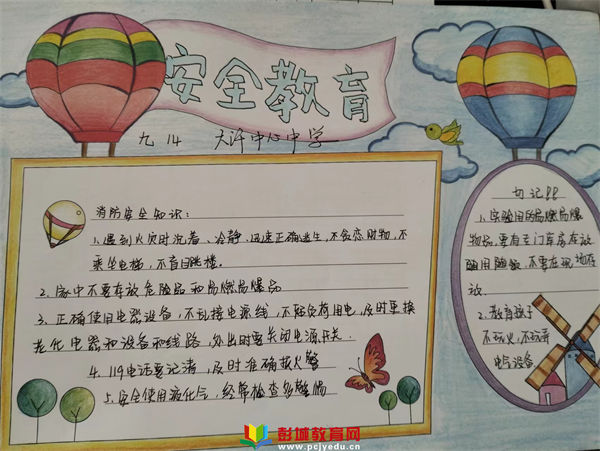 安全教育
九 14 大许中心中学
消防安全知识:
1.遇到火灾时沉着、冷静、迅速正确逃生,不贪恋财物,不
乘坐电梯,不盲目跳楼。
2.家中不要存放危险品和易燃易爆品
3.正确使用电器设备,不乱接电源线,不超负荷用电,及时更换
老化电器和设备和线路,外出时要关闭电源开关.
4.119电话要记清,及时准确报火警
5.安全使用液化气,经常检查多警惕
切记
1.实验用的易燃易爆
物品,要有专门库房存放
随用随领,不要在现场存
放.
2.教育孩子
不玩火,不玩弄
电气设备
彭城教育网
www.pcjyedu.cn